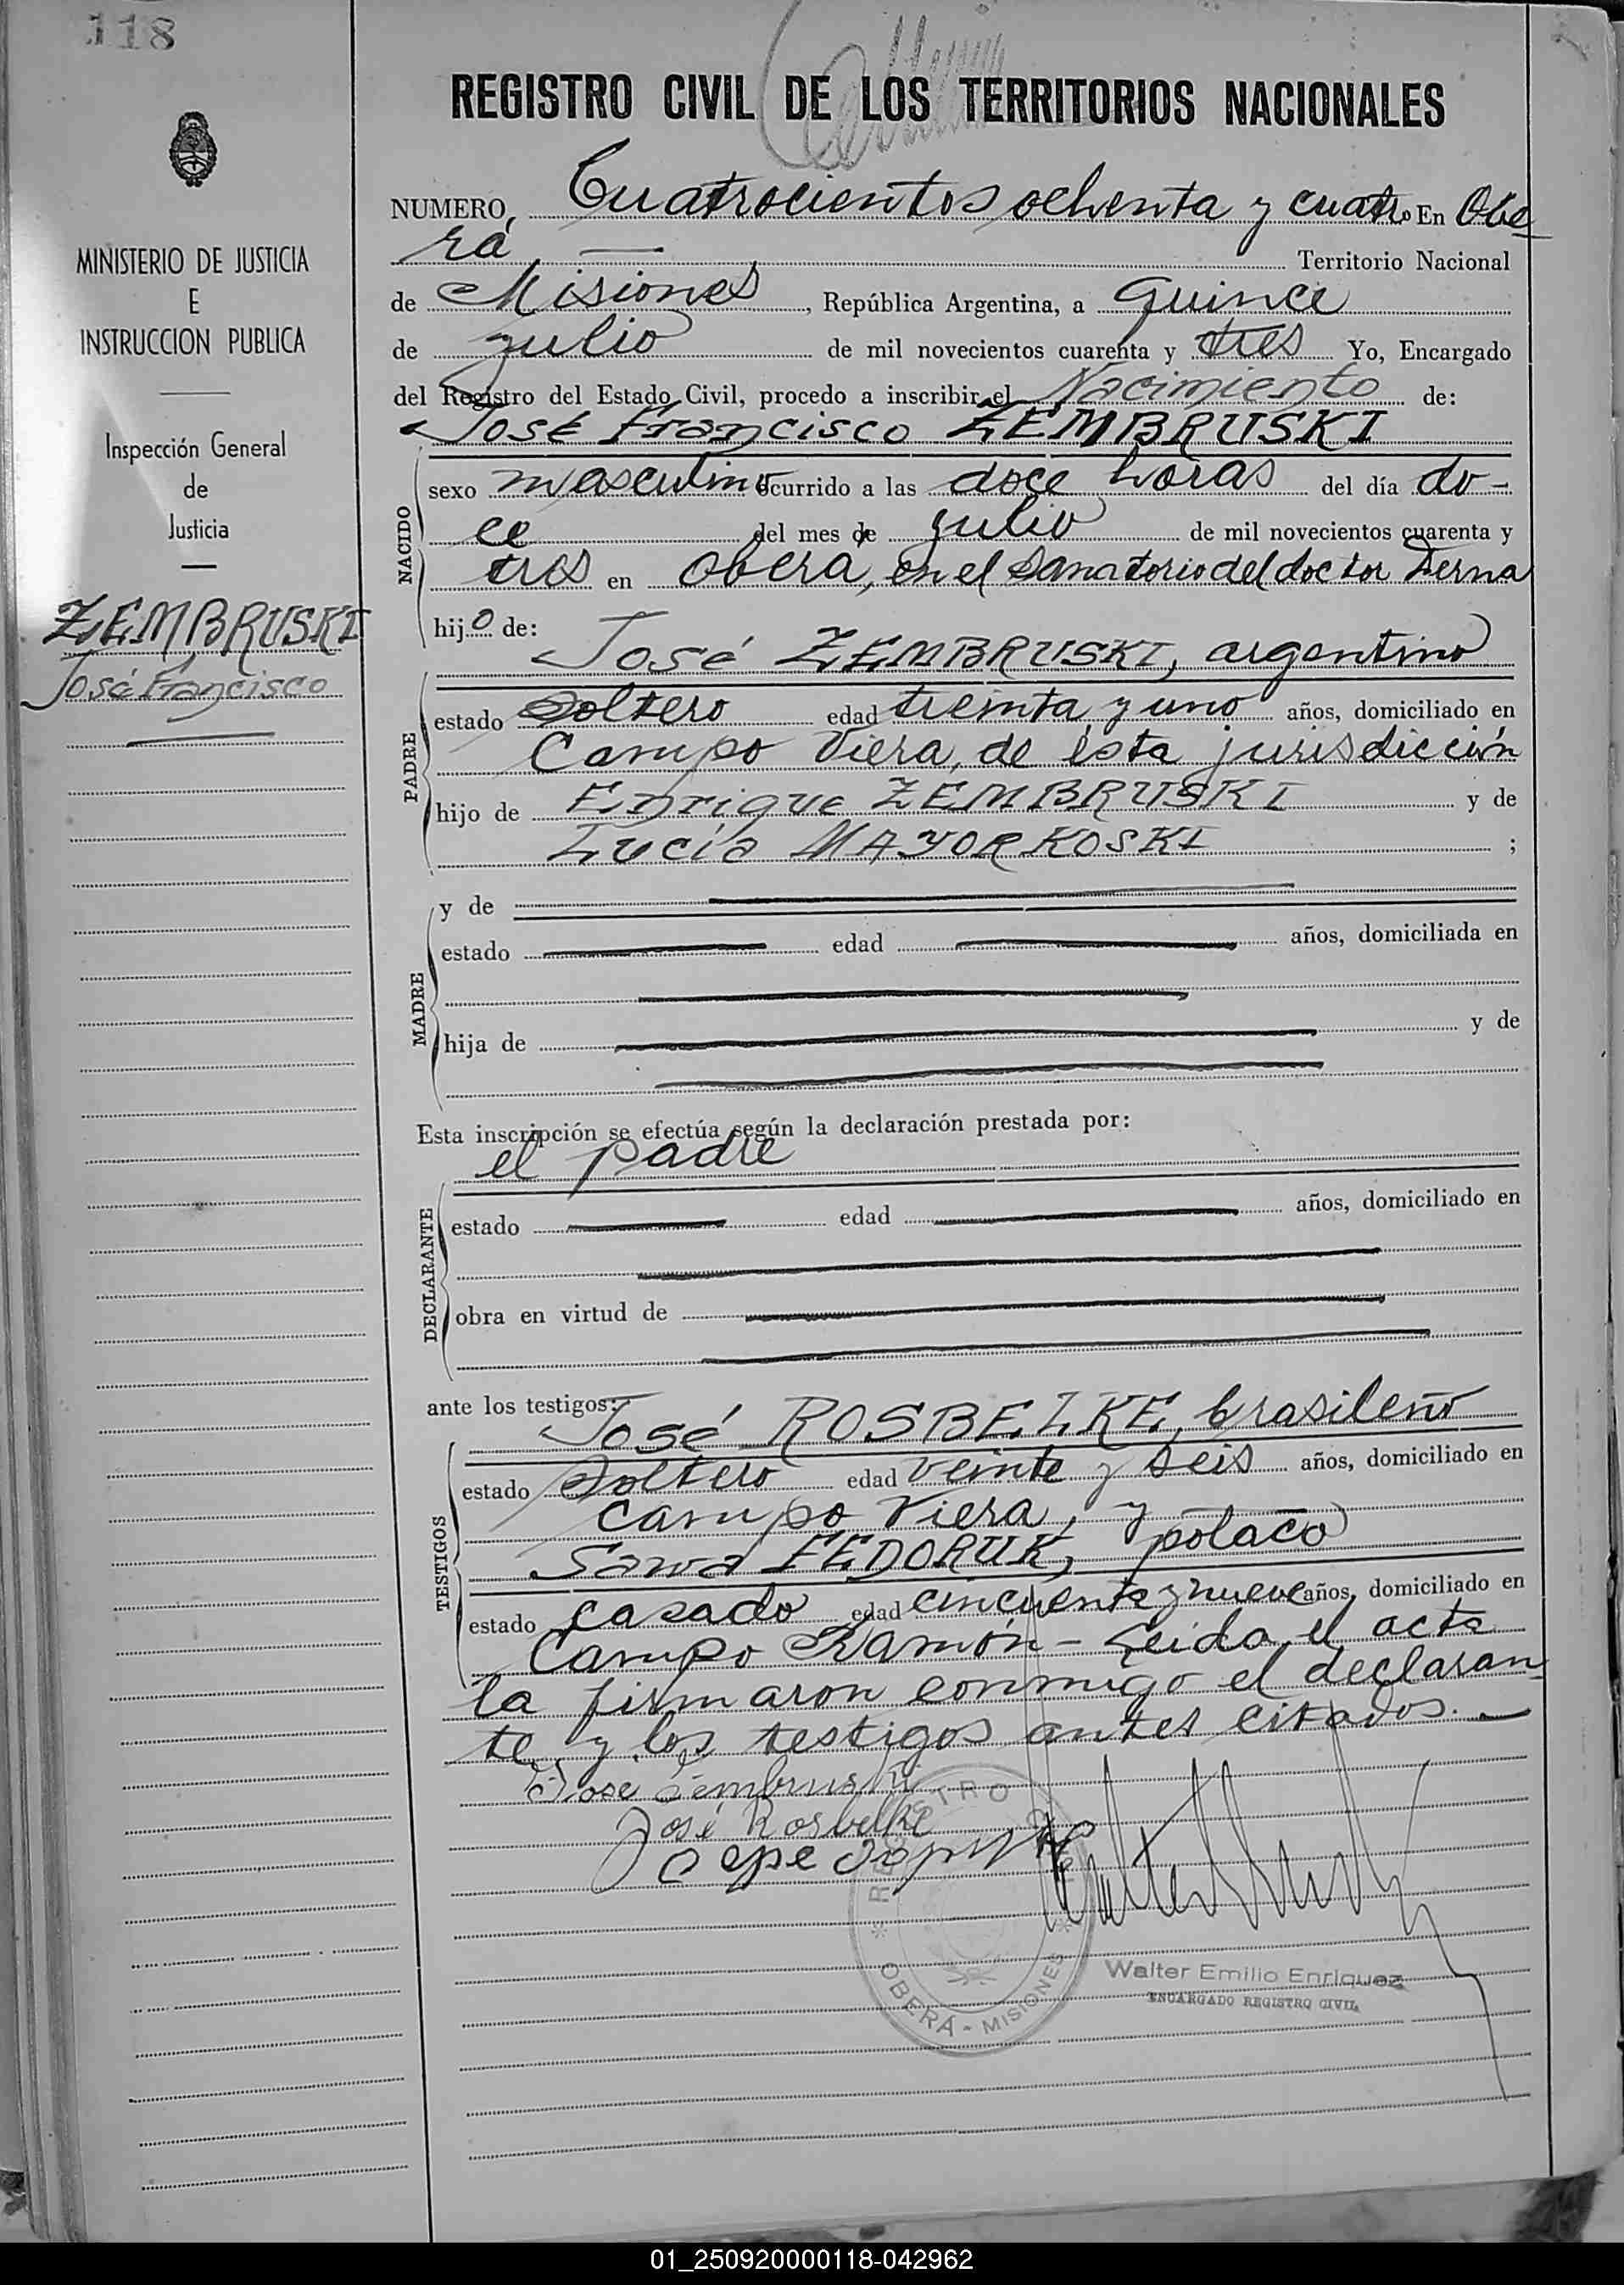 118
REGISTRO CIVIL DE LOS TERRITORIOS NACIONALES
MINISTERIO DE JUSTICIA
E
INSTRUCCION PUBLICA
Inspección General
de
Justicia
ZEMBRUSKI
José Francisco
NUMERO, Cuatrocientos ochenta y cuatro En Obe-
rá Territorio Nacional
de Misiones, República Argentina, a quince
de julio de mil novecientos cuarenta y tres Yo, Encargado
del Registro del Estado Civil, procedo a inscribir el Nacimiento de:
José Francisco ZEMBRUSKI
NACIDO
sexo masculino ocurrido a las doce horas del día do-
ce del mes de julio de mil novecientos cuarenta y
tres en Oberá, en el Sanatorio del doctor Derna
hijo de:
José ZEMBRUSKI, argentino
PADRE
estado soltero edad treinta y uno años, domiciliado en
Campo Viera, de ésta jurisdicción
hijo de Enrique ZEMBRUSKI y de
Lucía MAYORKOSKI ;
MADRE
y de
estado edad años, domiciliada en
hija de y de
Esta inscripción se efectúa según la declaración prestada por:
el padre
DECLARANTE
estado edad años, domiciliado en
obra en virtud de
ante los testigos:
José ROSBELKE, brasileño
TESTIGOS
estado soltero edad veinte y seis años, domiciliado en
Campo Viera, y
Sawa FEDORUK, polaco
estado casado edad cincuenta y nueve años, domiciliado en
Campo Ramón - Leida el acta
la firmaron conmigo el declaran-
te y los testigos antes citados.-
Jose Zembruski
José Rosbelke
REGISTRO CIVIL
OBERÁ - MISIONES
Walter Emilio Enriquez
ENCARGADO REGISTRO CIVIL
01_250920000118-042962